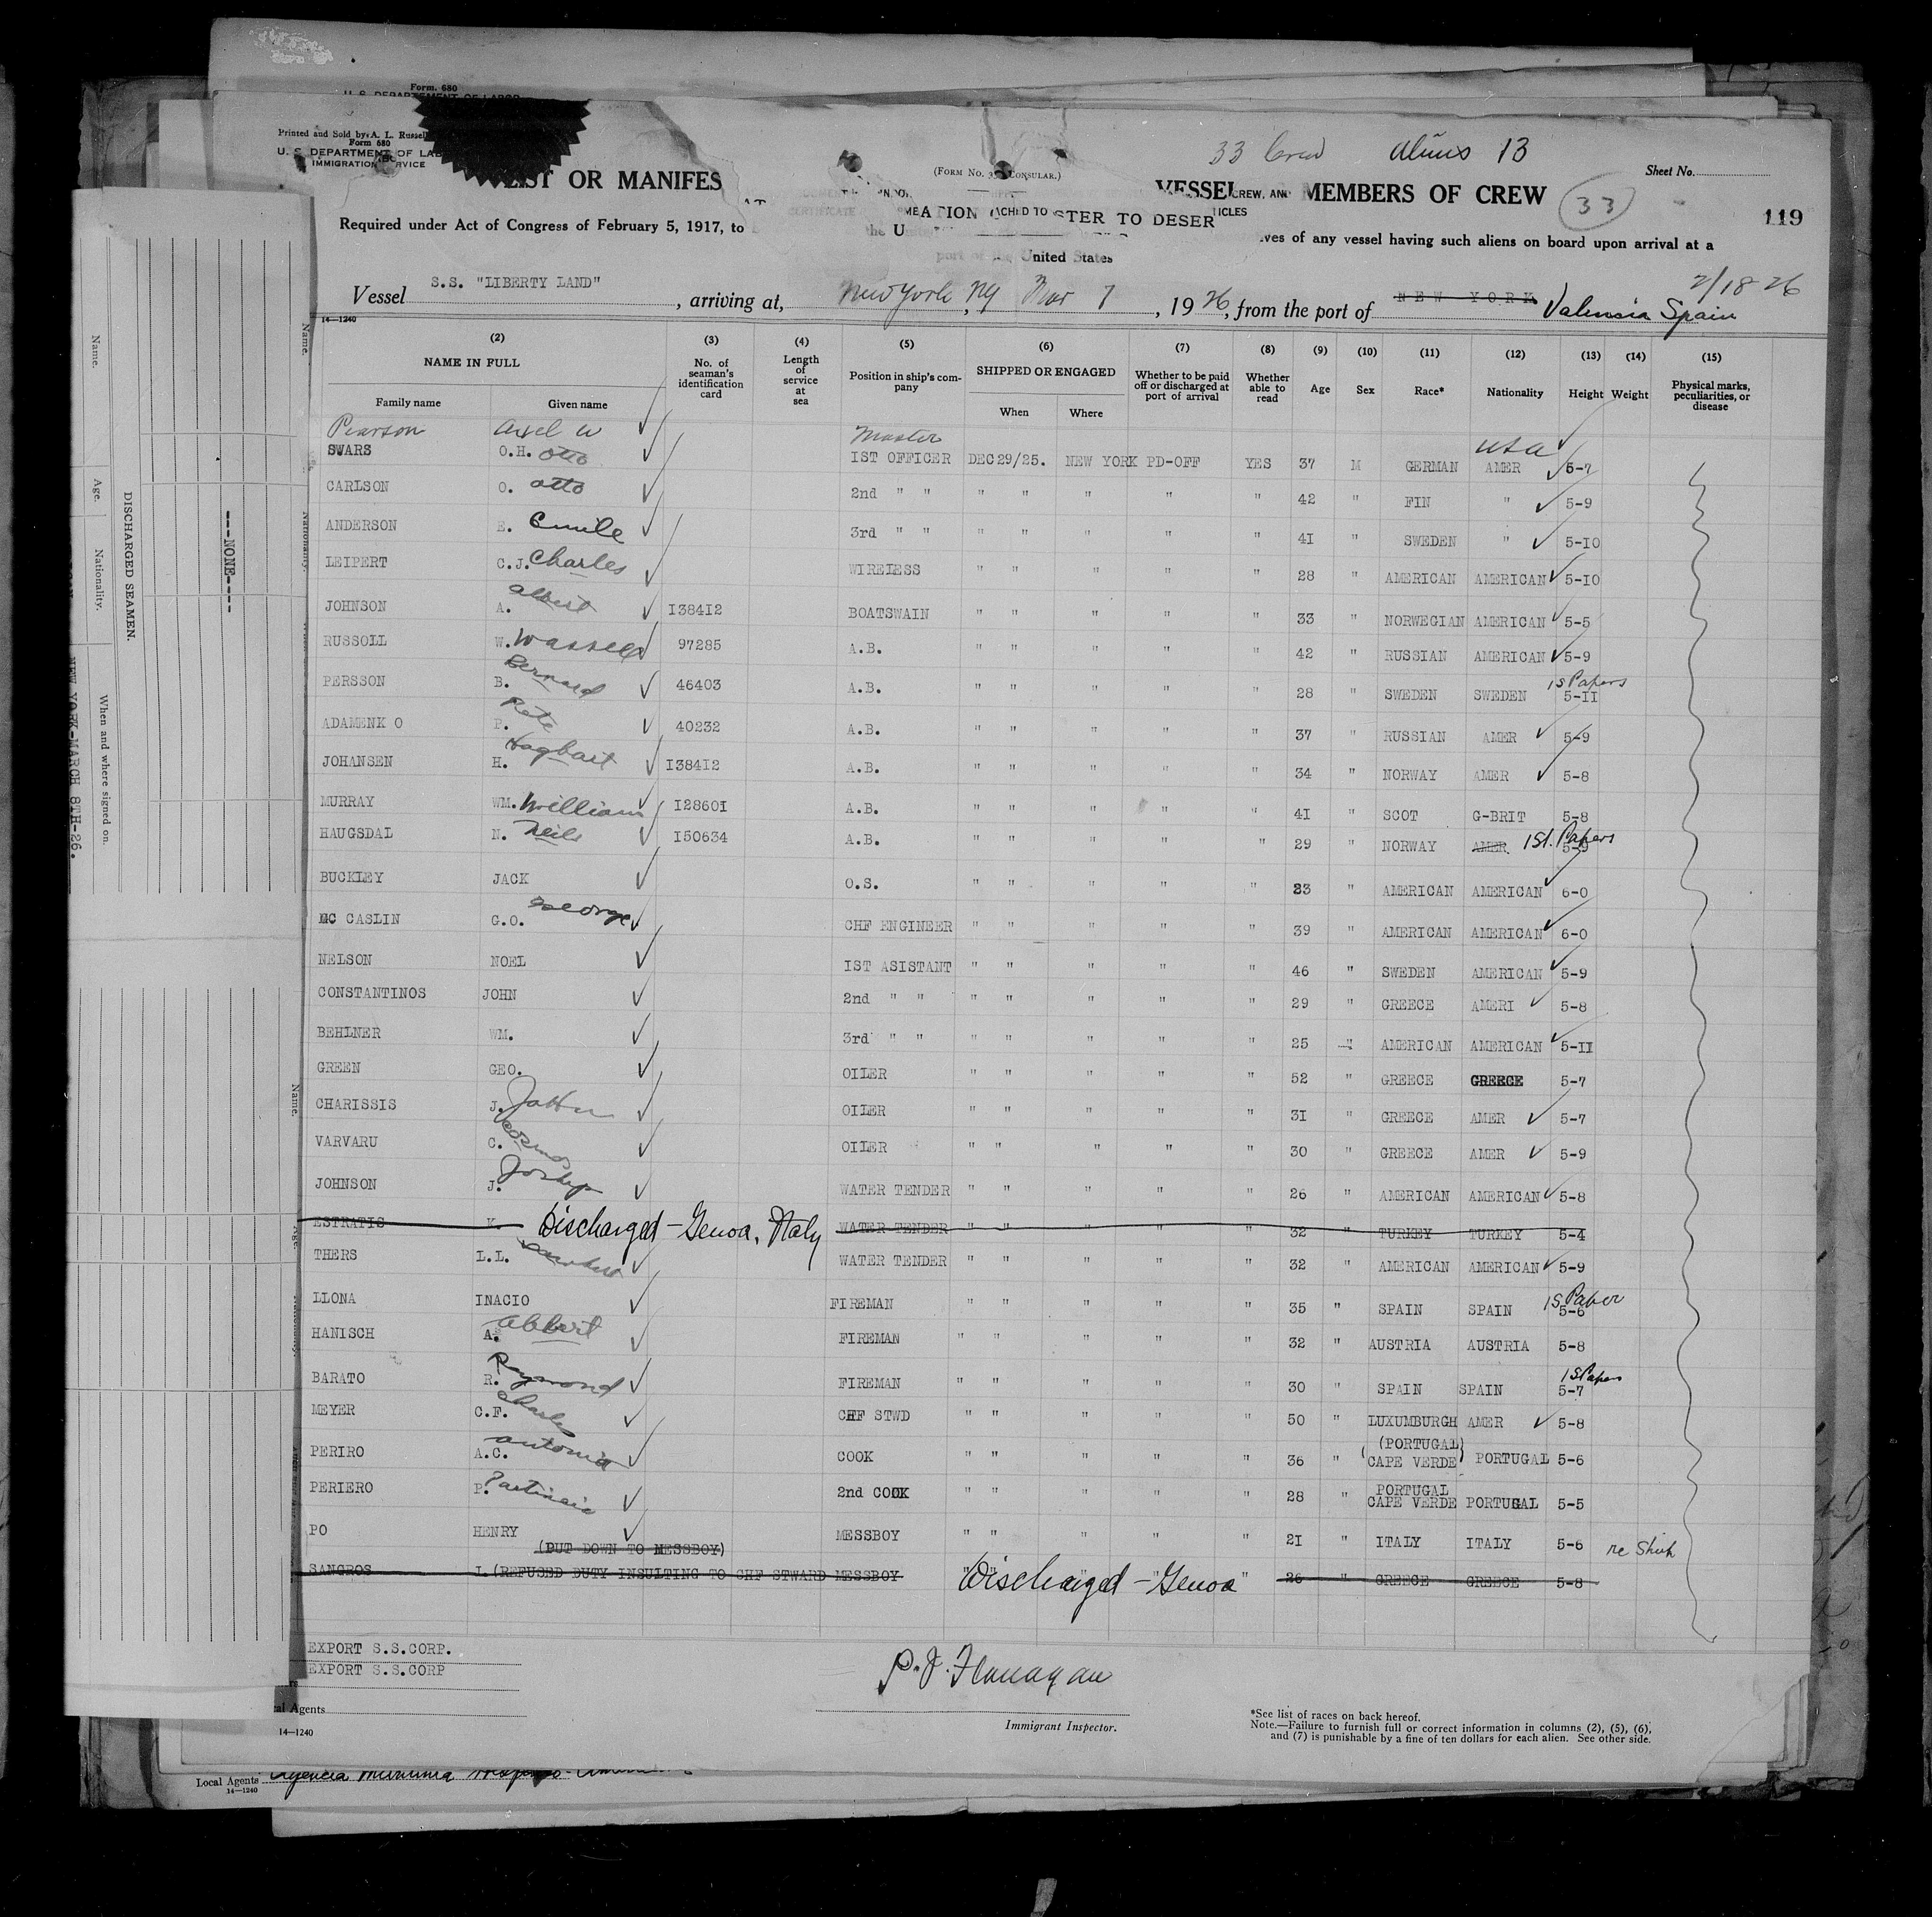 Form. 680
Printed and Sold by A. L. Russell
Form 680
U. S. DEPARTMENT OF LAB
IMMIGRATION SERVICE
33 Crew Aliens 13
(FORM NO. 3 CONSULAR.)
Sheet No.
LIST OR MANIFES VESSEL CREW, AND MEMBERS OF CREW 33
119
ATION ACHED TO STER TO DESER TICLES
Required under Act of Congress of February 5, 1917, to the U ves of any vessel having such aliens on board upon arrival at a
port of the United States
2/18 26
Vessel S.S. "LIBERTY LAND", arriving at, New York, NY Mar 7, 1926, from the port of NEW YORK Valencia Spain
14—1240
(2) (3) (4) (5) (6) (7) (8) (9) (10) (11) (12) (13) (14) (15)
NAME IN FULL No. of seaman's identification card Length of service at sea Position in ship's company SHIPPED OR ENGAGED Whether to be paid off or discharged at port of arrival Whether able to read Age Sex Race* Nationality Height Weight Physical marks, peculiarities, or disease
Family name Given name When Where
Pearson Axel W Master USA
SWARS O.H. Otto IST OFFICER DEC 29/25. NEW YORK PD-OFF YES 37 M GERMAN AMER 5-7
CARLSON O. Otto 2nd " " " " " " " 42 " FIN " 5-9
ANDERSON E. Emile 3rd " " " " " " " 41 " SWEDEN " 5-10
LEIPERT C.J. Charles WIRELESS " " " " " 28 " AMERICAN AMERICAN 5-10
JOHNSON A. Albert I38412 BOATSWAIN " " " " " 33 " NORWEGIAN AMERICAN 5-5
RUSSOLL W. Wassell 97285 A.B. " " " " " 42 " RUSSIAN AMERICAN 5-9
PERSSON B. Bernard 46403 A.B. " " " " " 28 " SWEDEN SWEDEN 1s Papers 5-II
ADAMENK O P. Pete 40232 A.B. " " " " " 37 " RUSSIAN AMER 5-9
JOHANSEN H. Hagbart I38412 A.B. " " " " " 34 " NORWAY AMER 5-8
MURRAY WM. William I28601 A.B. " " " " " 41 " SCOT G-BRIT 5-8
HAUGSDAL N. Neils I50634 A.B. " " " " " 29 " NORWAY AMER. 1st. Papers 5-9
BUCKLEY JACK O.S. " " " " " 23 " AMERICAN AMERICAN 6-0
MC CASLIN G.O. George CHF ENGINEER " " " " " 39 " AMERICAN AMERICAN 6-0
NELSON NOEL IST ASISTANT " " " " " 46 " SWEDEN AMERICAN 5-9
CONSTANTINOS JOHN 2nd " " " " " " " 29 " GREECE AMERI 5-8
BEHLNER WM. 3rd " " " " " " " 25 " AMERICAN AMERICAN 5-II
GREEN GEO. OILER " " " " " 52 " GREECE GREECE 5-7
CHARISSIS J. OILER " " " " " 31 " GREECE AMER 5-7
VARVARU C. Cosmos OILER " " " " " 30 " GREECE AMER 5-9
JOHNSON J. Joship WATER TENDER " " " " " 26 " AMERICAN AMERICAN 5-8
ESTRATIS K. Discharged - Genoa, Italy WATER TENDER " " " " " 32 " TURKEY TURKEY 5-4
THERS L.L. WATER TENDER " " " " " 32 " AMERICAN AMERICAN 5-9
LLONA INACIO FIREMAN " " " " " 35 " SPAIN SPAIN 1s Paper 5-6
HANISCH A. Albert FIREMAN " " " " " 32 " AUSTRIA AUSTRIA 5-8
BARATO R. Raymond FIREMAN " " " " " 30 " SPAIN SPAIN 1s Papers 5-7
MEYER C.F. Charles CHF STWD " " " " " 50 " LUXUMBURGH AMER 5-8
PERIRO A.C. Antonia COOK " " " " " 36 " (PORTUGAL) (CAPE VERDE) PORTUGAL 5-6
PERIERO P. 2nd COOK " " " " " 28 " PORTUGAL CAPE VERDE PORTUGAL 5-5
PO HENRY MESSBOY " " " " " 21 " ITALY ITALY 5-6
(PUT DOWN TO MESSBOY)
SANGROS L (REFUSED DUTY INSULTING TO CHF STWARD MESSBOY Discharged - Genoa " 26 " GREECE GREECE 5-8
EXPORT S.S.CORP.
EXPORT S.S.CORP
P. J. Flanagan
al Agents
Immigrant Inspector.
14—1240
*See list of races on back hereof.
Note.—Failure to furnish full or correct information in columns (2), (5), (6),
and (7) is punishable by a fine of ten dollars for each alien. See other side.
Local Agents
14—1240
Name.
Age.
Nationality.
When and where signed on.
DISCHARGED SEAMEN.
---NONE----
NEW YORK-MARCH 8TH-26.
Name.
Nationality.
Name.
Age.